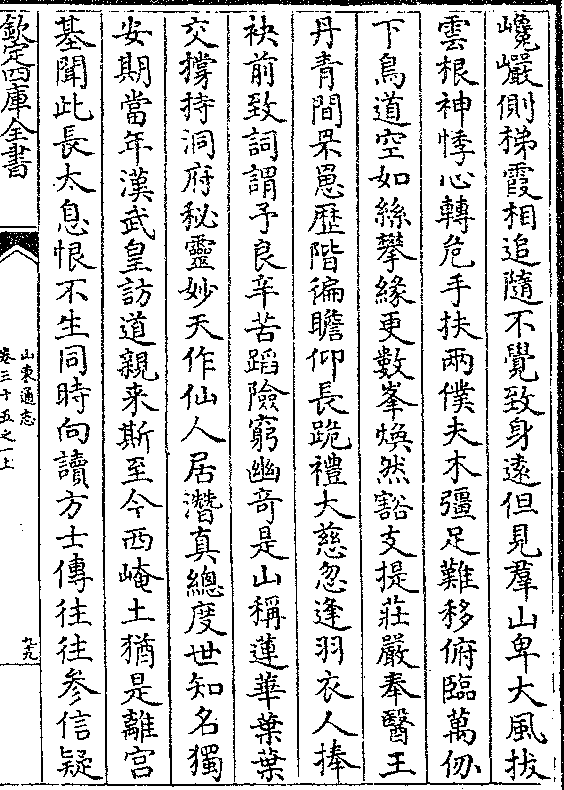 巉巖側梯霞相追隨不覺致身遠但見羣山卑大風拔
雲根神悸心轉危手扶兩僕夫木彊足難移俯臨萬仞
下鳥道空如絲攀緣更數峯煥然豁支提莊嚴奉醫王
丹青間罘罳歷階徧瞻仰長跪禮大慈忽逢羽衣人捧
袂前致詞謂予良辛苦蹈險窮幽奇是山稱蓮華葉葉
交撐持洞府秘靈妙天作仙人居潛真總度世知名獨
安期當年漢武皇訪道親来斯至今西崦土猶是離宫
基聞此長太息恨不生同時向讀方士傳往往参信疑
欽定四庫全書
山東通志
卷三十五之一上
九九